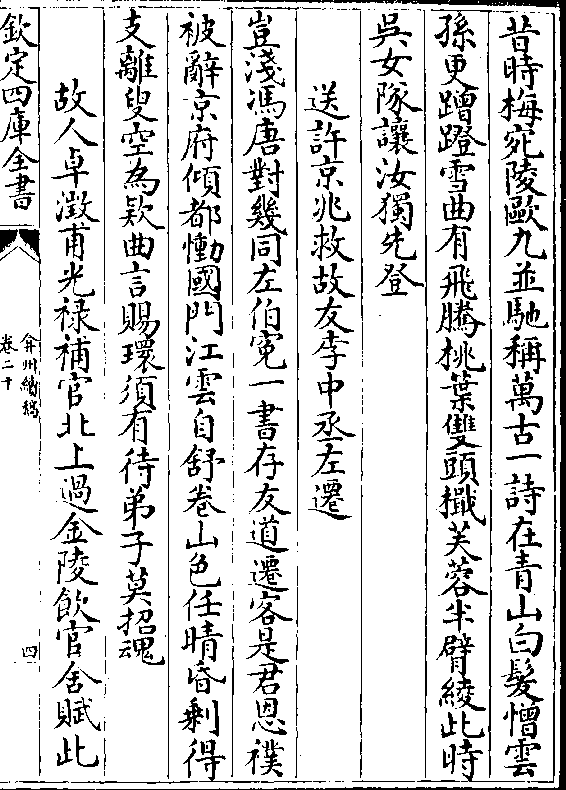 昔時梅宛陵歐九並馳稱萬古一詩在青山白髮憎雲
孫更蹭蹬雪曲有飛騰桃葉雙頭檝芙蓉半臂綾此時
吳女隊讓汝獨先登
送許京兆救故友李中丞左遷
豈淺馮唐對幾同左伯寃一書存友道遷客是君恩襆
被辭京府傾都慟國門江雲自舒卷山色任晴昏剰得
支離叟空為欵曲言賜環須有待弟子莫招魂
故人卓澂甫光禄補官北上過金陵飲官舍賦此
欽定四庫全書
弇州續稿
卷二十
四